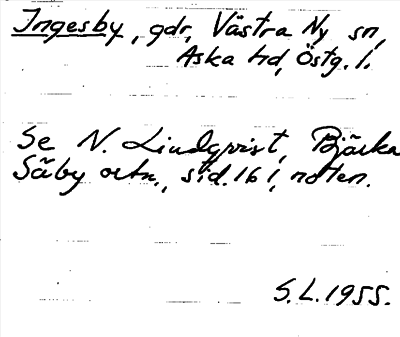 Ingesby, gdr, Västra Ny sn,
Aska hd, Östg. l.
Se N. Lindqvist, Bjärka
Säby ortn., sid. 161, noten.
S.L. 1955.